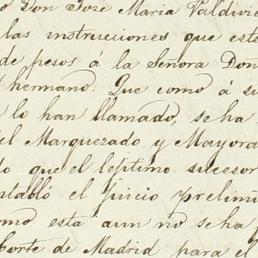 Don José Maria Valdivie
las instrucciones que este
de pesos á la Señora Don
hermano. Que como á su
lo han llamado, se ha
el Marquezado y Mayora
do que el léptimo sucesor
ntabló el juicio prelimi
omo esta aun no se ha
Corte de Madrid para el